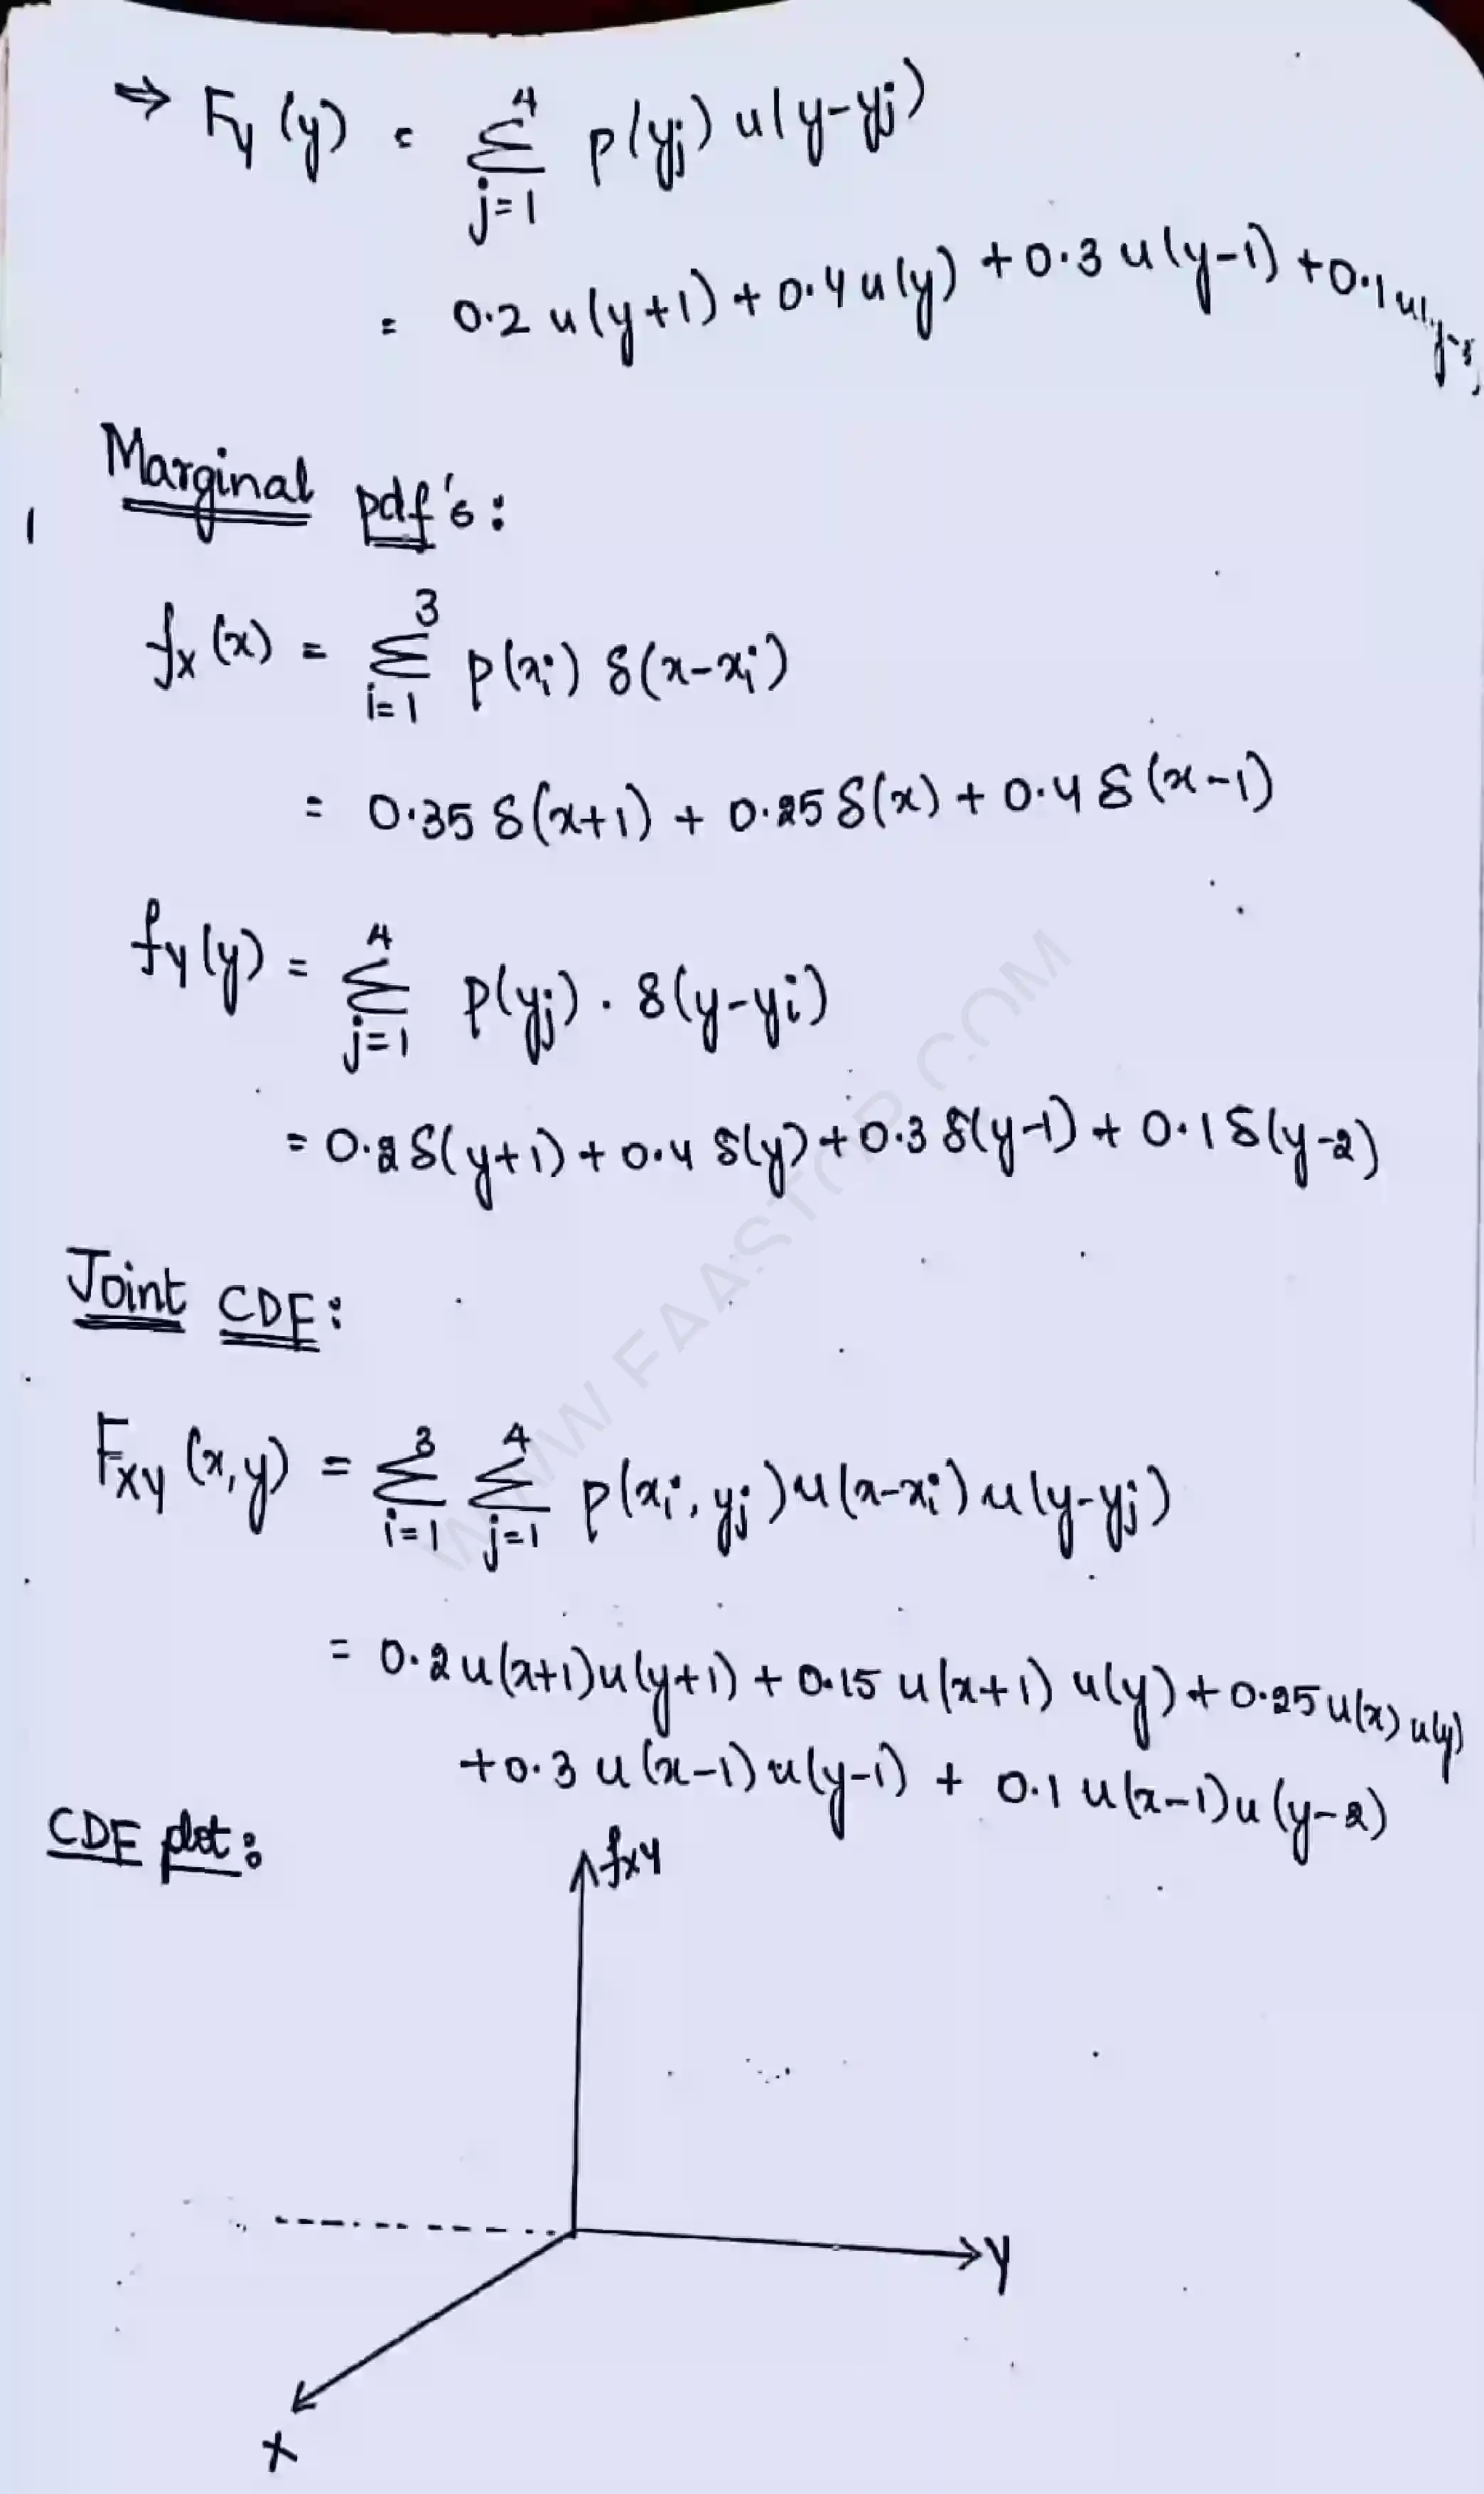 ⇒ Fy (y) = 4 Σ j=1 p(yj) u(y-yj)
= 0.2 u(y+1) + 0.4 u(y) + 0.3 u(y-1) + 0.1 u(
Marginal pdf's:
fx (x) = 3 Σ i=1 p(xi) δ(x-xi)
= 0.35 δ(x+1) + 0.25 δ(x) + 0.4 δ(x-1)
fy(y) = 4 Σ j=1 p(yj) . δ(y-yi)
= 0.2 δ(y+1) + 0.4 δ(y) + 0.3 δ(y-1) + 0.1 δ(y-2)
Joint CDF:
Fxy (x,y) = 3 Σ i=1 4 Σ j=1 p(xi, yj) u(x-xi) u(y-yj)
= 0.2 u(x+1) u(y+1) + 0.15 u(x+1) u(y) + 0.25 u(x) u(y)
+ 0.3 u(x-1) u(y-1) + 0.1 u(x-1) u(y-2)
CDF plot:
fxy
y
x
WWW.FAASTOP.COM